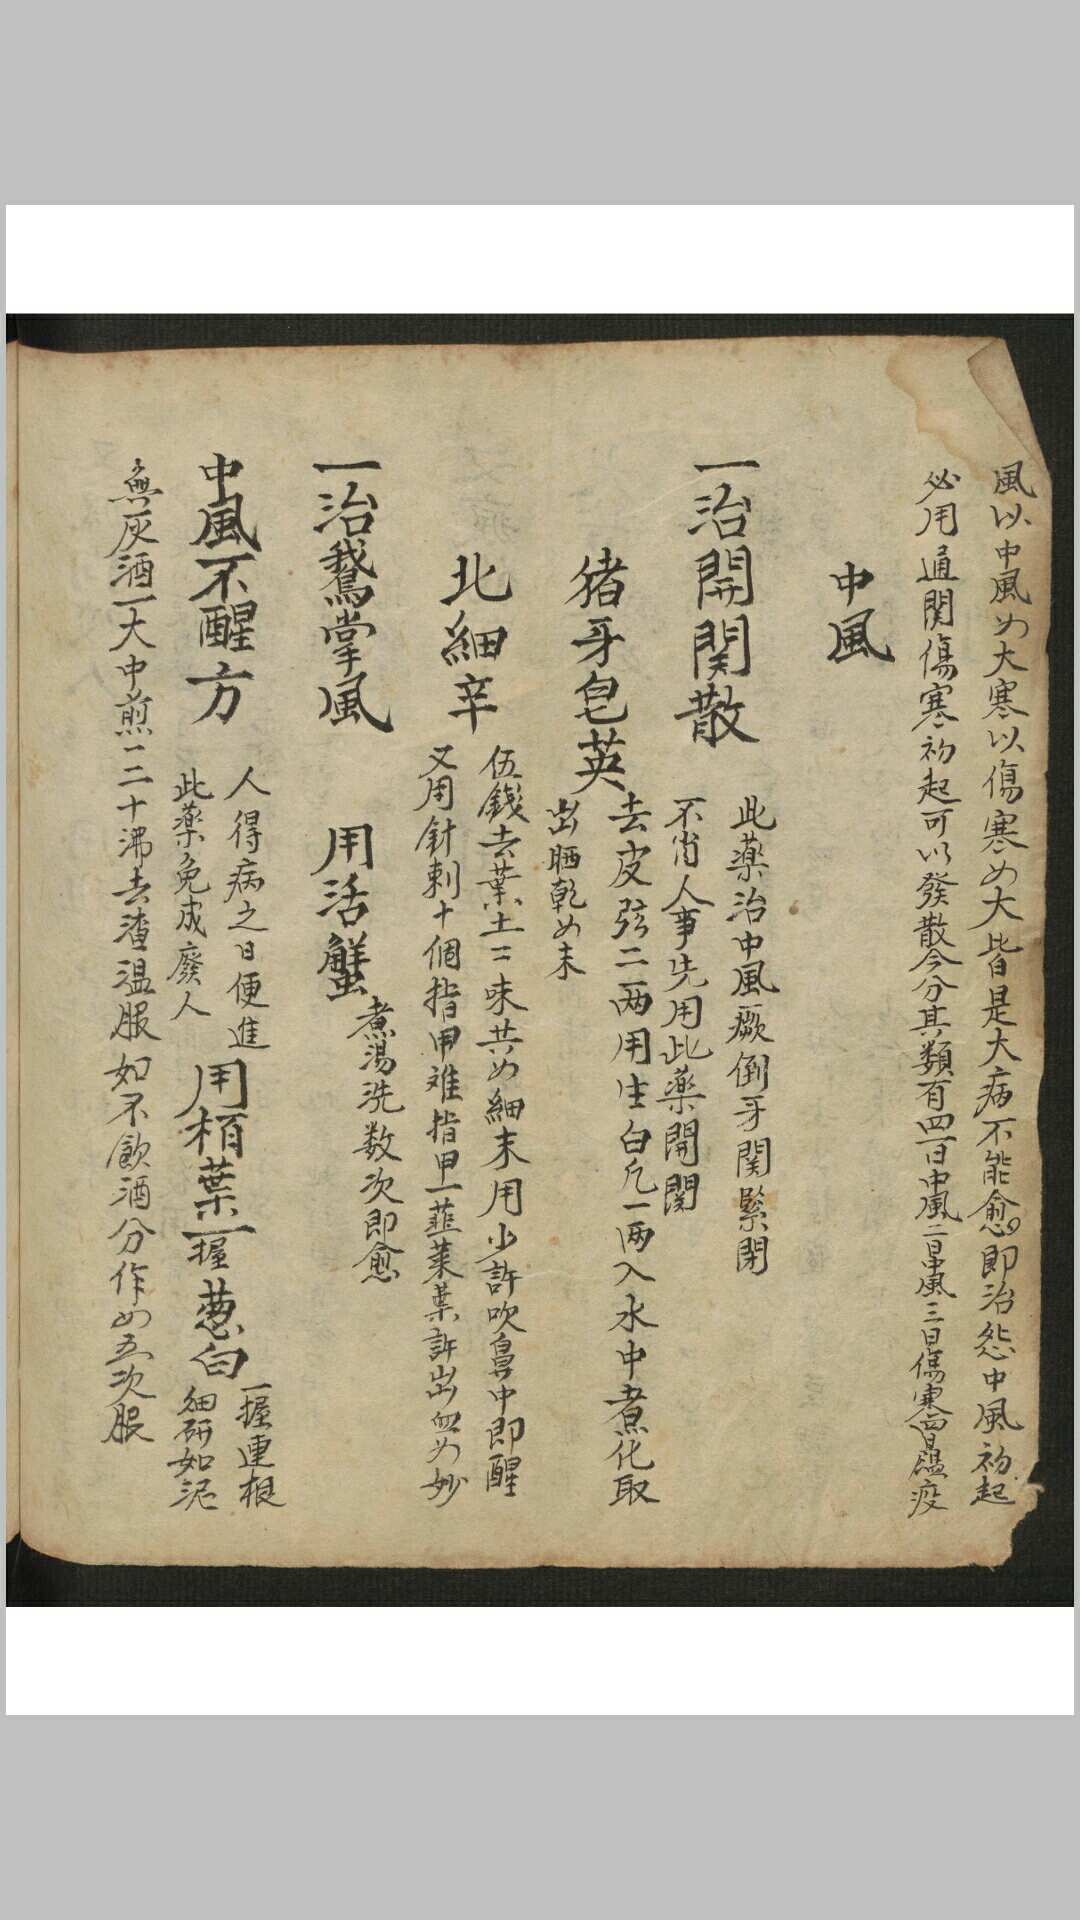 風以中風為大寒以傷寒為大皆是大病不能愈即治怨中風初起
必用通関傷寒初起可以發散今分其類有四一曰中風二曰中風三曰傷寒四曰瘟疫
中風
一治開関散
此藥治中風厥倒牙関緊閉
不省人事先用此藥開関
猪牙皂英
去皮弦二两用生白凡一两入水中煮化取
出晒乾為末
北細辛
伍錢去葉土二味共為細末用少許吹鼻中即醒
又用針刺十個指甲难指甲一韮菜葉許出血為妙
一治鵞掌風
用活蟹
煮湯洗数次即愈
中風不醒方
人得病之日便進
此藥免成廢人
用栢葉一握葱白
一握連根
細研如泥
無灰酒一大中煎一二十沸去渣温服如不飲酒分作为五次服